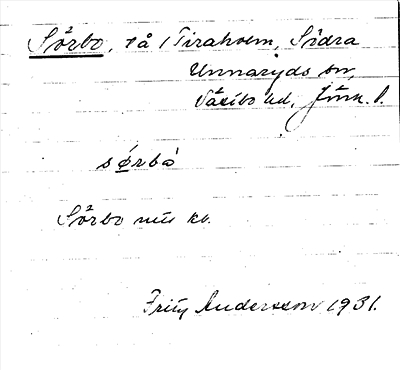 Sörbo, på / Tiraholm, Södra
Unnaryds sn,
Västbo hd, Jönk. l.
sørbo
Sörbo mil kv.
Fritz Andersson 1931.